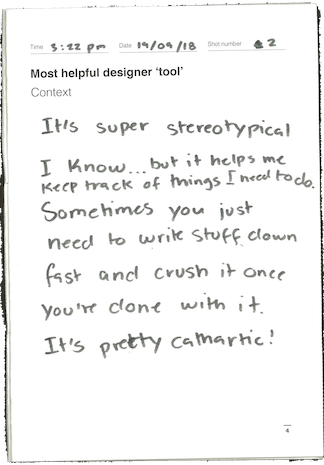 Time 5:22 pm Date 19/09/18 Shot number 2
Most helpful designer ‘tool’
Context
It's super stereotypical
I know...but it helps me
keep track of things I need to do.
Sometimes you just
need to write stuff down
fast and crush it once
you're done with it.
It's pretty cathartic!
4